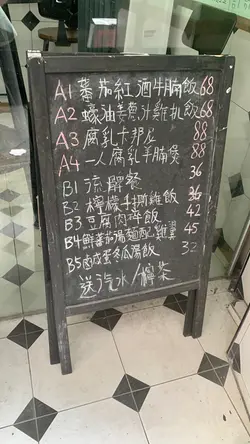 A1 蕃茄紅酒牛腩飯 68
A2 蠔油姜蔥汁雞扒飯 68
A3 腐乳卡邦尼 88
A4 一人腐乳羊腩煲 88
B1 流髀餐 36
B2 檸檬手撕雞飯 36
B3 豆腐肉碎飯 42
B4 鮮蕃茄湯麵配雞翼 45
B5 鹹蛋冬瓜湯飯 32
送汽水/檸茶